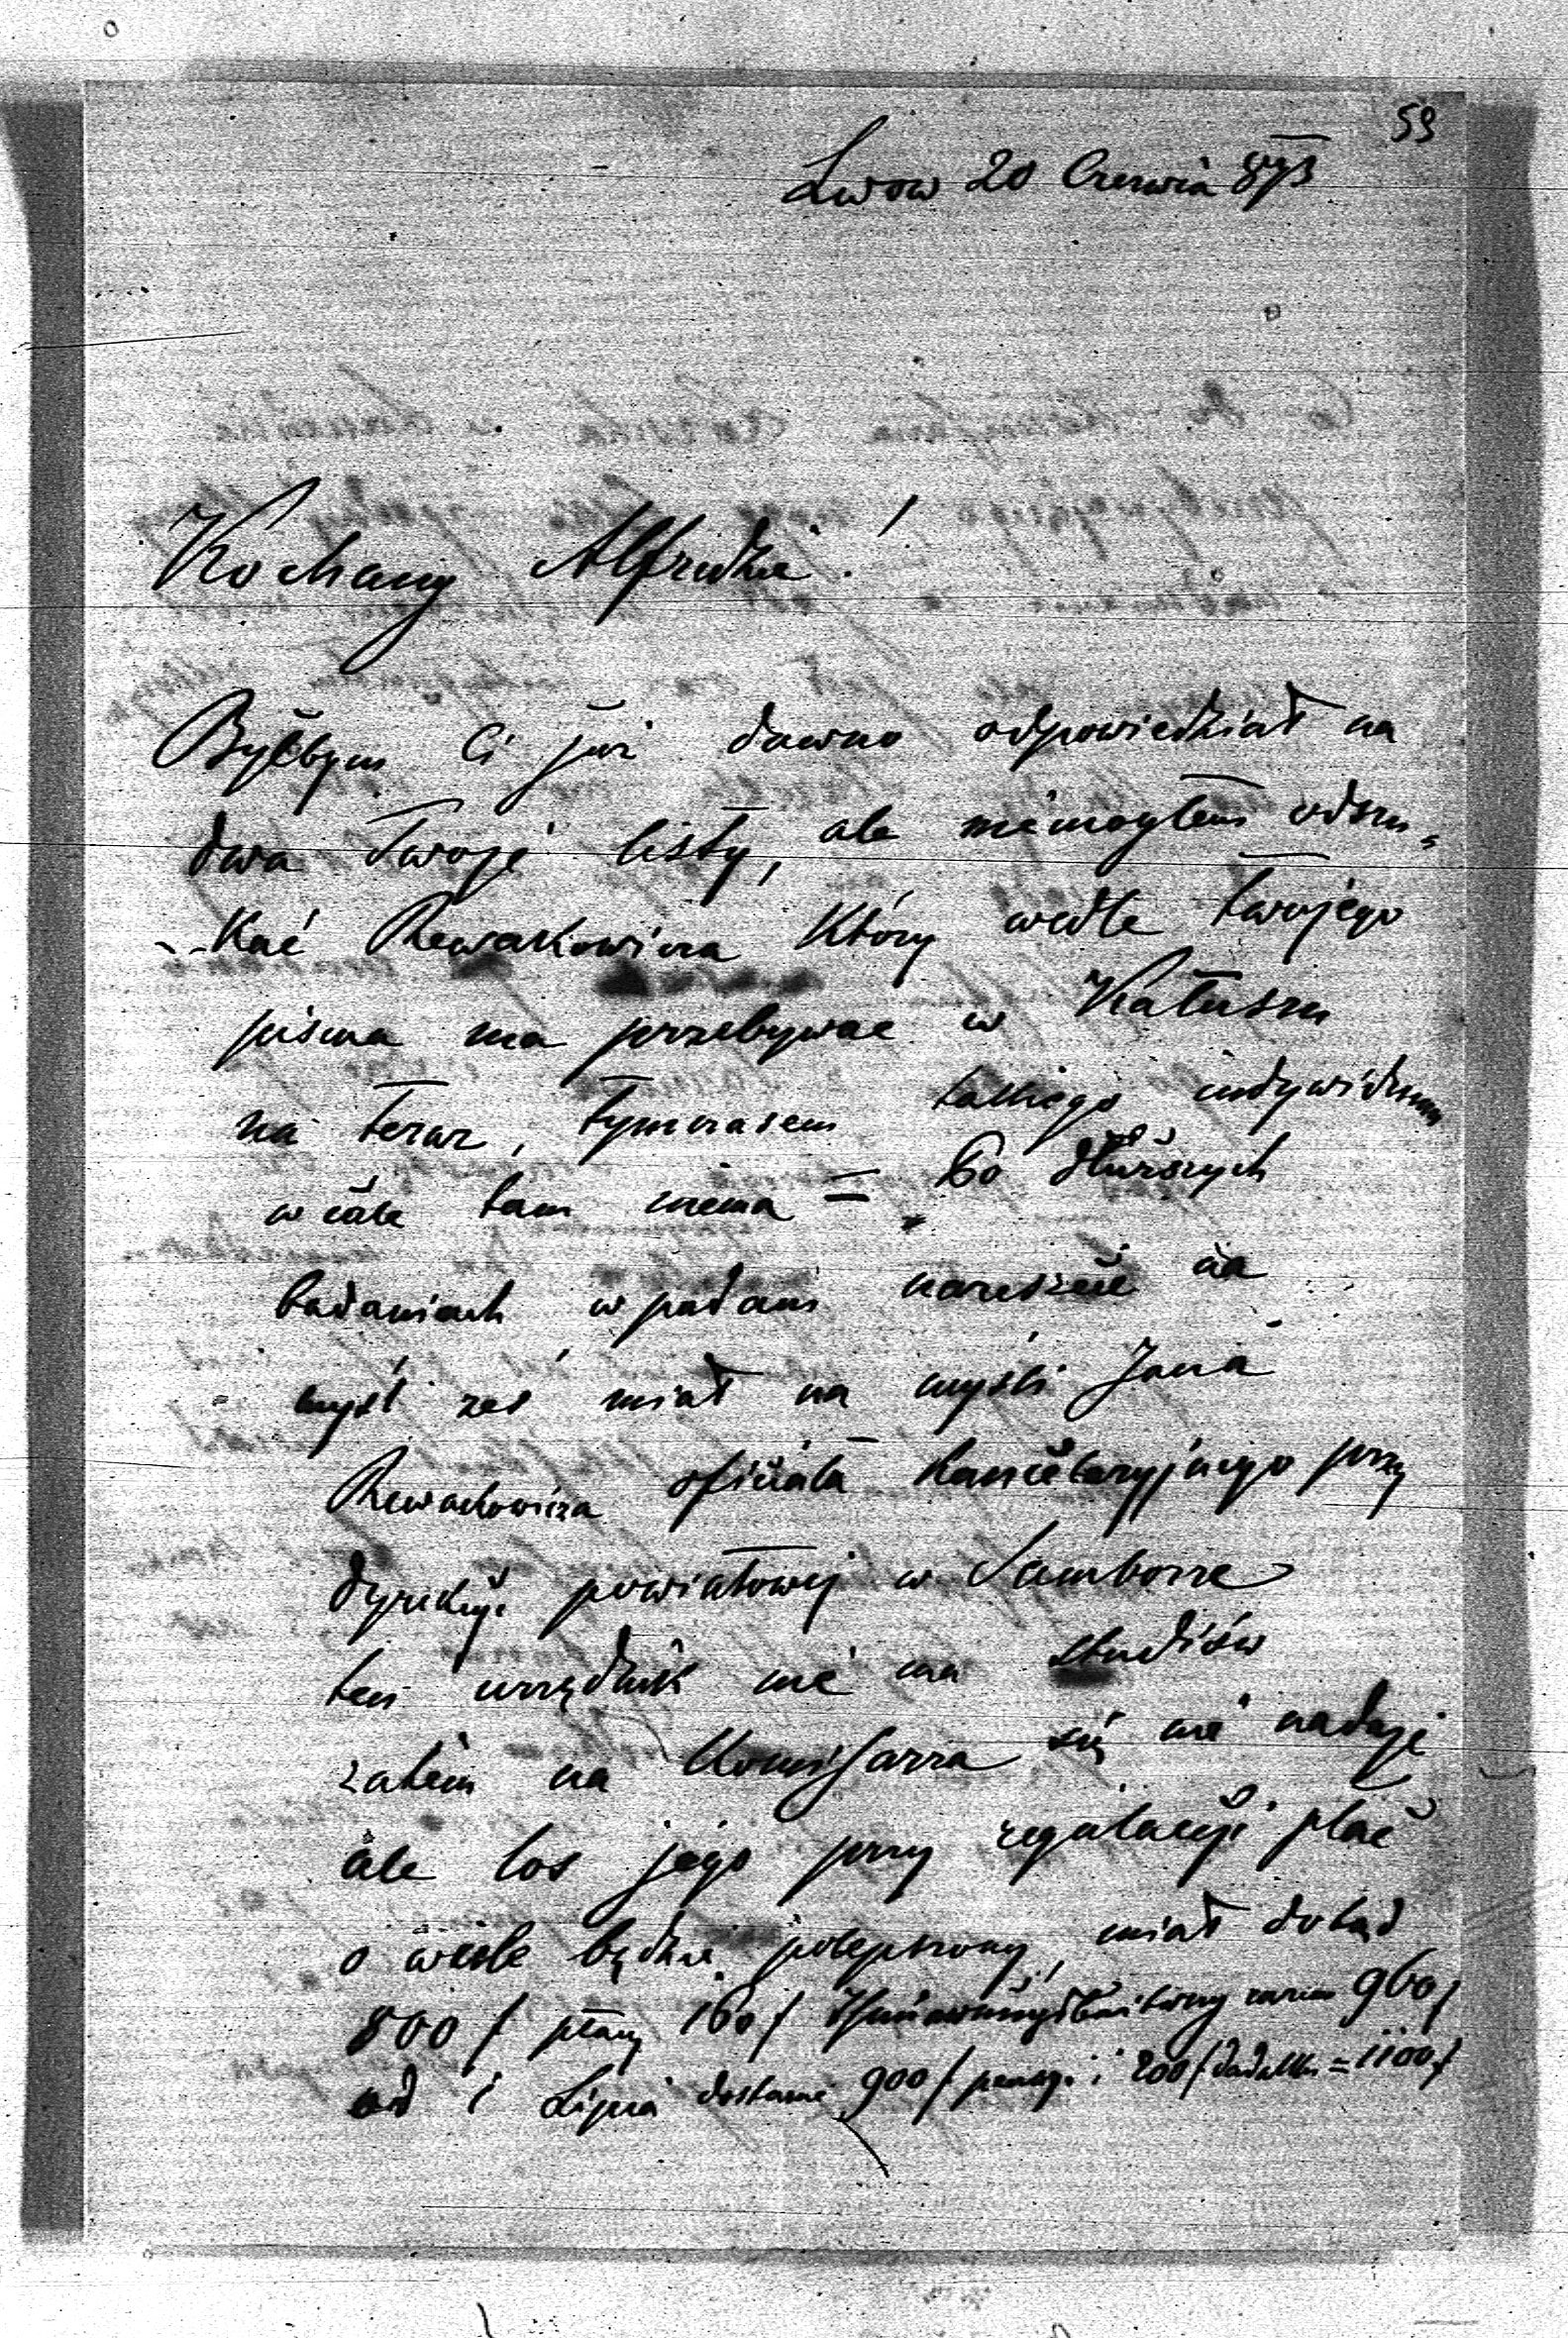 59
Lwow 20 Czerwca 873
Kochany Alfredzie!
Byłbym Ci już dawno odpowiedział na
dwa Twoje listy, ale niemogłem odszu=
kać Rewakowicza który wedle twojego
pisma ma przebywać w Kałuszu
na teraz, tymczasem takiego indywiduum
wcale tam niema = Po dłuższych
badaniach wpadam nareszcie na
myśl żeś miał na myśli Jana
Rewakowicza oficiała kancelaryjnego przy
dyrekcyi powiatowej w Samborze
ten urzędnik nie ma studiów
zatem na Komisarza się nie nadaje
ale los jego przy regulacyi płac
o wiele będzie polepszony, miał dotąd
800 f płacy 160 f razem 960 f
od 1 Lipca dostanie 900 f pensyi i 200 f dodatku = 1100 f